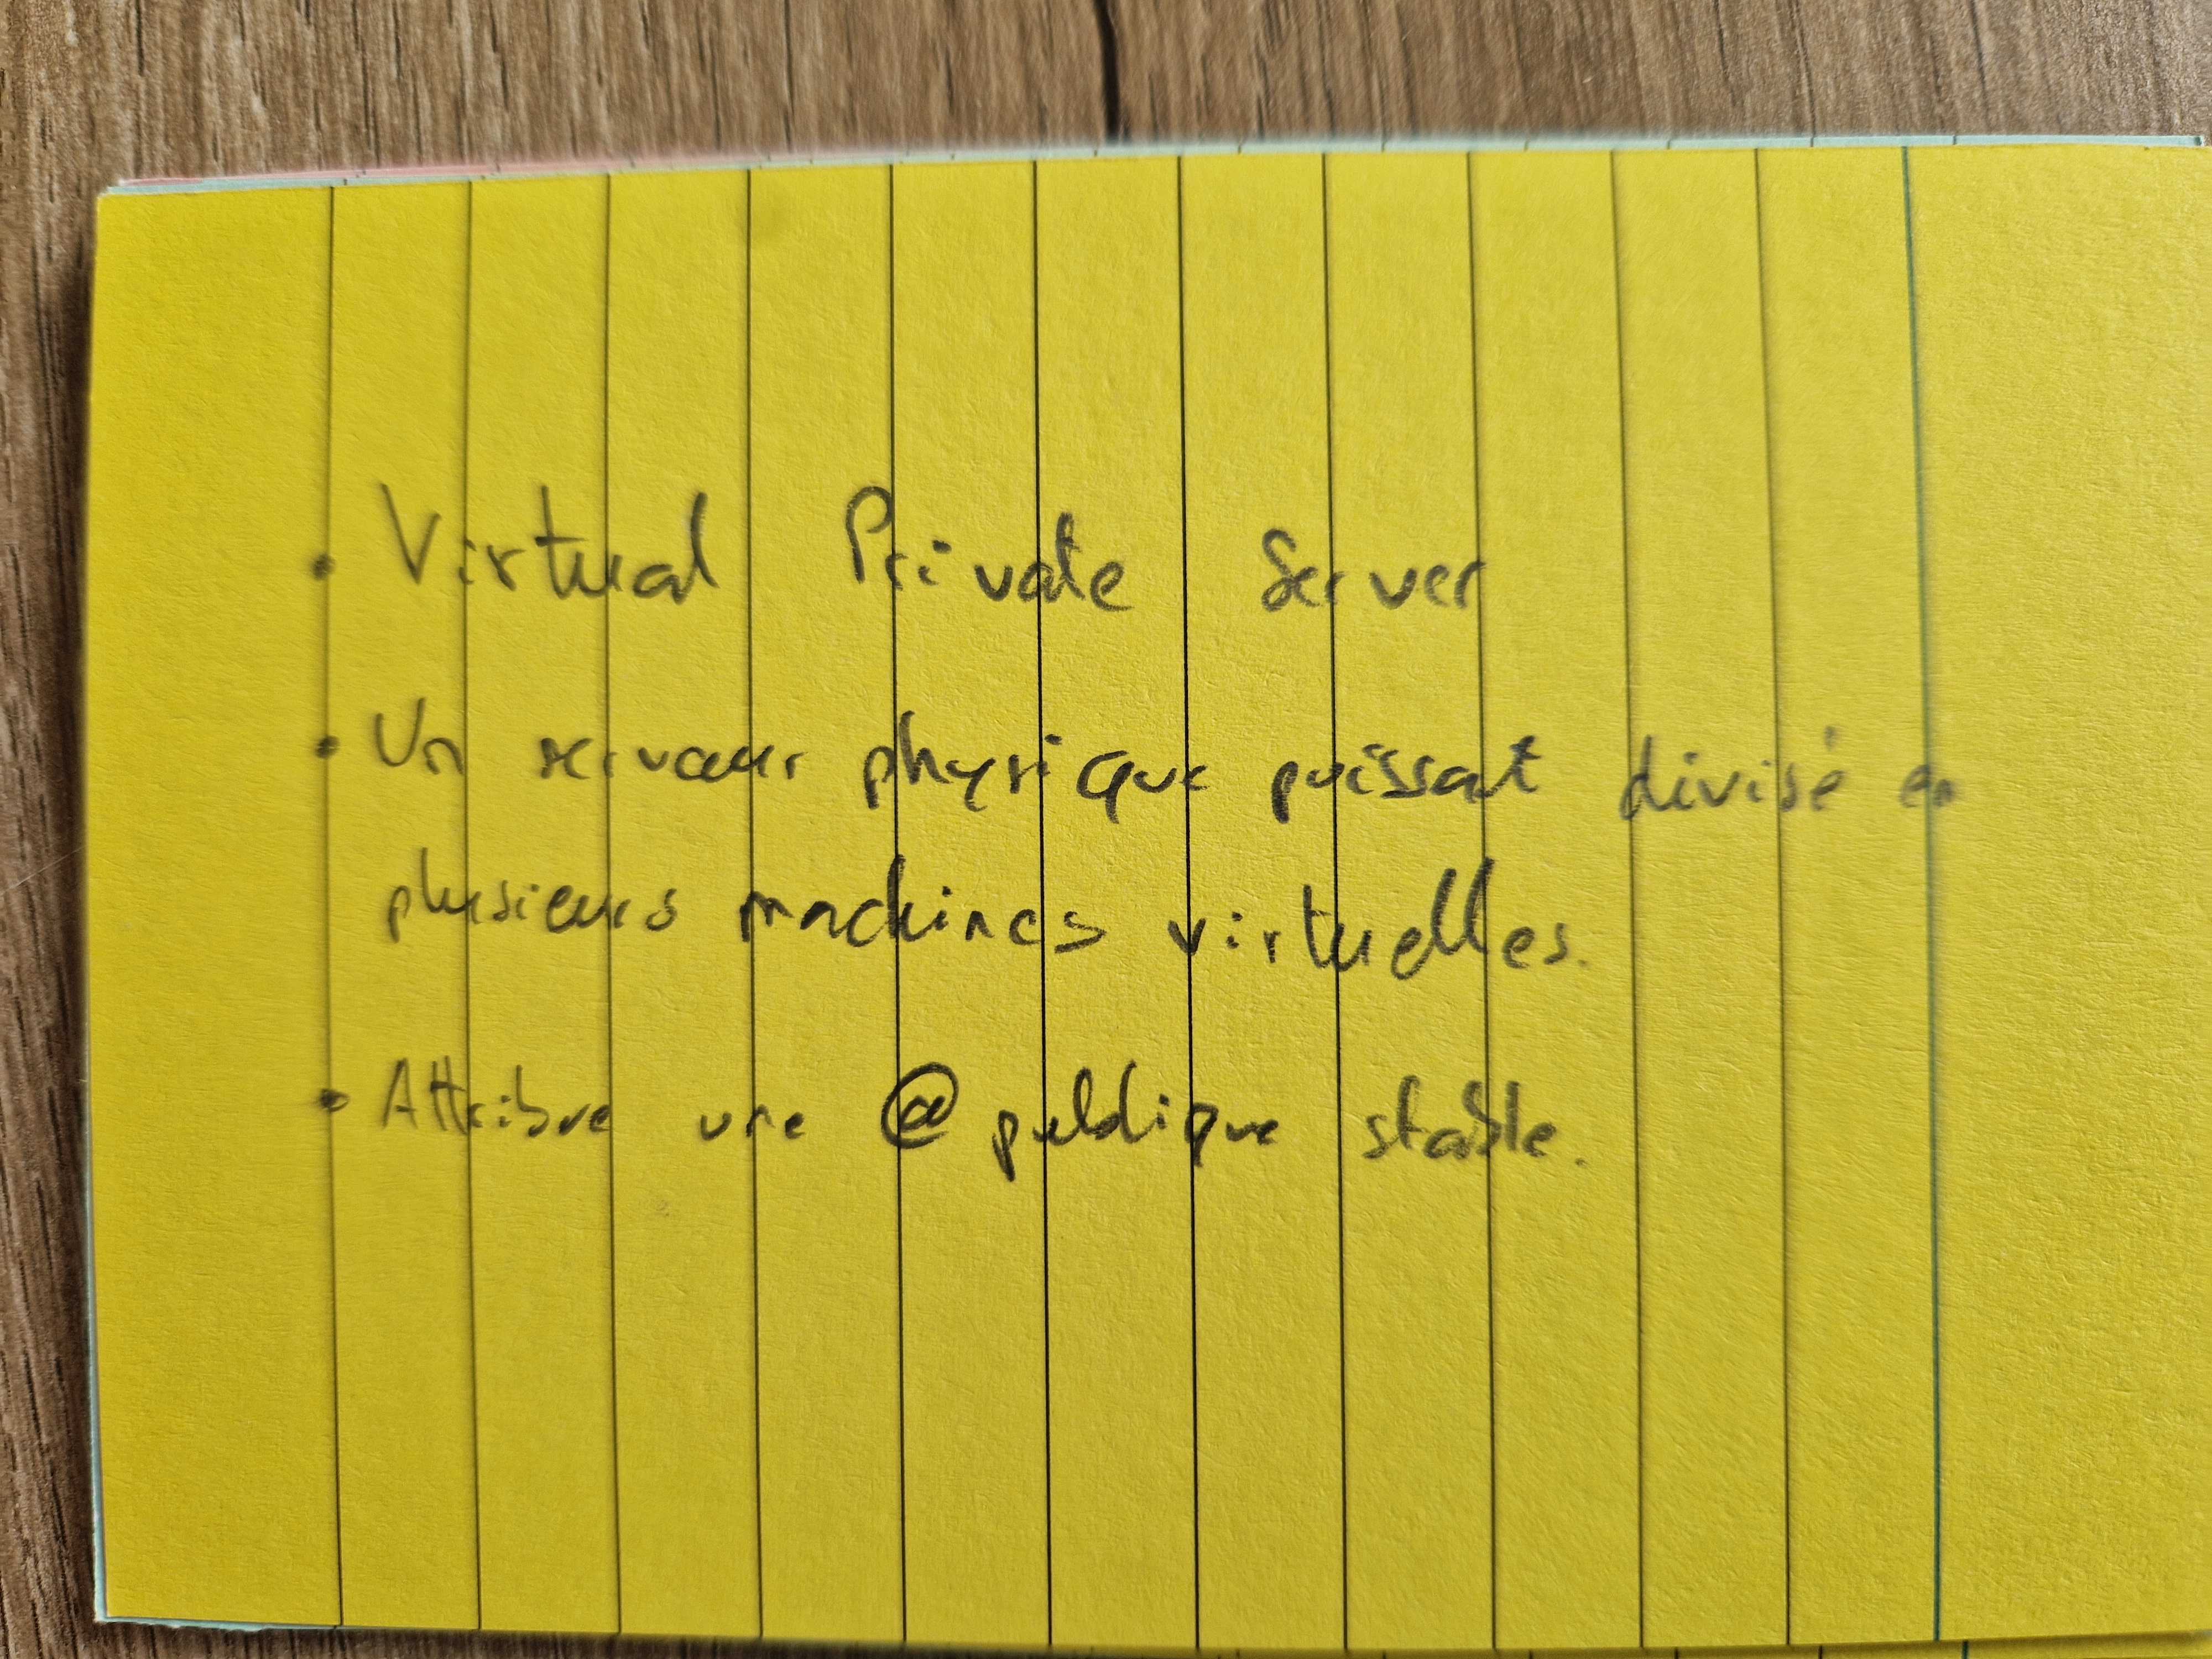 • Virtual Private Server
• Un serveur physique puissat divisé en
plusieurs machines virtuelles.
• Attribue une @ publique stable.